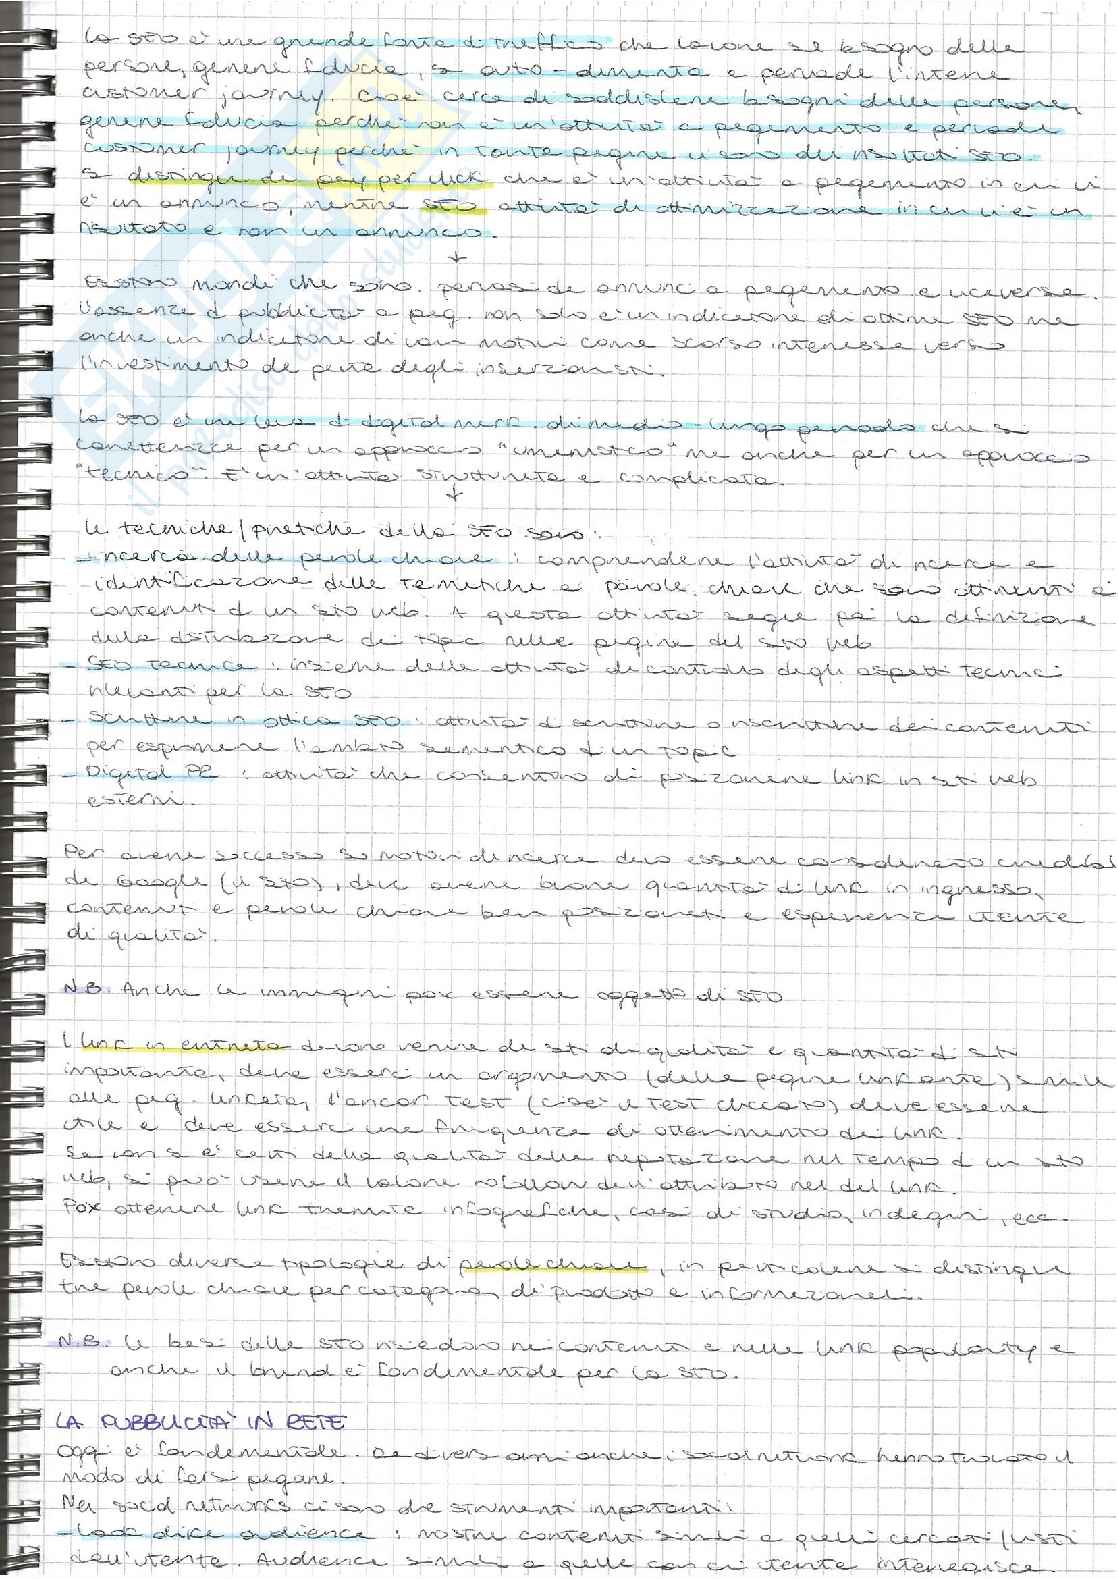 La SEO è una grande fonte di traffico che lavora sul bisogno delle
persone, genera fiducia, si auto-alimenta e pervade l'intera
customer journey. Cioè cerca di soddisfare bisogni delle persone,
genera fiducia perché non è un'attività a pagamento e pervade
customer journey perché in tante pagine ci sono dei risultati SEO.
Si distingue da pay per click che è un'attività a pagamento in cui vi
è un annuncio, mentre SEO attività di ottimizzazione in cui vi è un
risultato e non un annuncio.
Esistono mondi che sono pervasi da annunci a pagamento e viceversa.
L'assenza di pubblicità a pag. non solo è un indicatore di ottima SEO ma
anche un indicatore di vari motivi come scarso interesse verso
l'investimento da parte degli inserzionisti.
La SEO è una leva di digital mark. di medio-lungo periodo che si
caratterizza per un approccio "umanistico" ma anche per un approccio
"tecnico". È un'attività strutturata e complicata.
Le tecniche/pratiche della SEO sono:
- ricerca delle parole chiave: comprendere l'attività di ricerca e
identificazione delle tematiche e parole chiave che sono attinenti ai
contenuti di un sito web. A questa attività segue poi la definizione
della distribuzione dei topic nelle pagine del sito web
- SEO tecnica: insieme delle attività di controllo degli aspetti tecnici
rilevanti per la SEO
- Scrittura in ottica SEO: attività di scrittura o riscrittura dei contenuti
per esprimere l'ambito semantico di un topic
- Digital PR: attività che consentono di posizionare link in siti web
esterni.
Per avere successo su motori di ricerca devo essere considerato credibile
da Google (il sito), deve avere buone quantità di link in ingresso,
contenuti e parole chiave ben posizionati e esperienza utente
di qualità.
N.B. Anche le immagini poss essere oggetto di SEO
I link in entrata devono venire da siti di qualità e quantità di siti
importante, deve esserci un argomento (delle pagine linkante) simile
alle pag. linkata, l'ancor test (cioè il test cliccato) deve essere
utile e deve esserci una frequenza di ottenimento dei link.
Se non si è certi della qualità della reputazione nel tempo di un sito
web, si può usare il valore nofollow dell'attributo rel del link.
Poss ottenere link tramite infografiche, casi di studio, indagini, ecc.
Esistono diverse tipologie di parole chiave, in particolare si distingue
tra parole chiave per categoria, di prodotto e informazionali.
N.B. Le basi della SEO risiedono nei contenuti e nella link popularity e
anche il brand è fondamentale per la SEO.
LA PUBBLICITÀ IN RETE
Oggi è fondamentale. Da diversi anni anche i social network hanno trovato il
modo di farsi pagare.
Nei social networks ci sono due strumenti importanti:
- Look alike audience: mostra contenuti simili a quelli cercati/visti
dall'utente. Audience simili a quelle con cui utente interagisce.